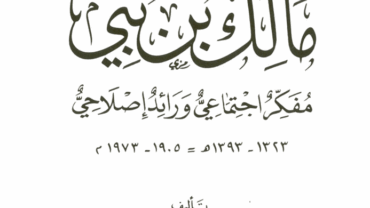 مَالِك بْن نَبِيّ
مُفَكِّرٌ اجْتِمَاعِيٌّ وَرَائِدٌ إِصْلَاحِيٌّ
١٣٢٣ - ١٣٩٣هـ = ١٩٠٥ - ١٩٧٣م
تأليف